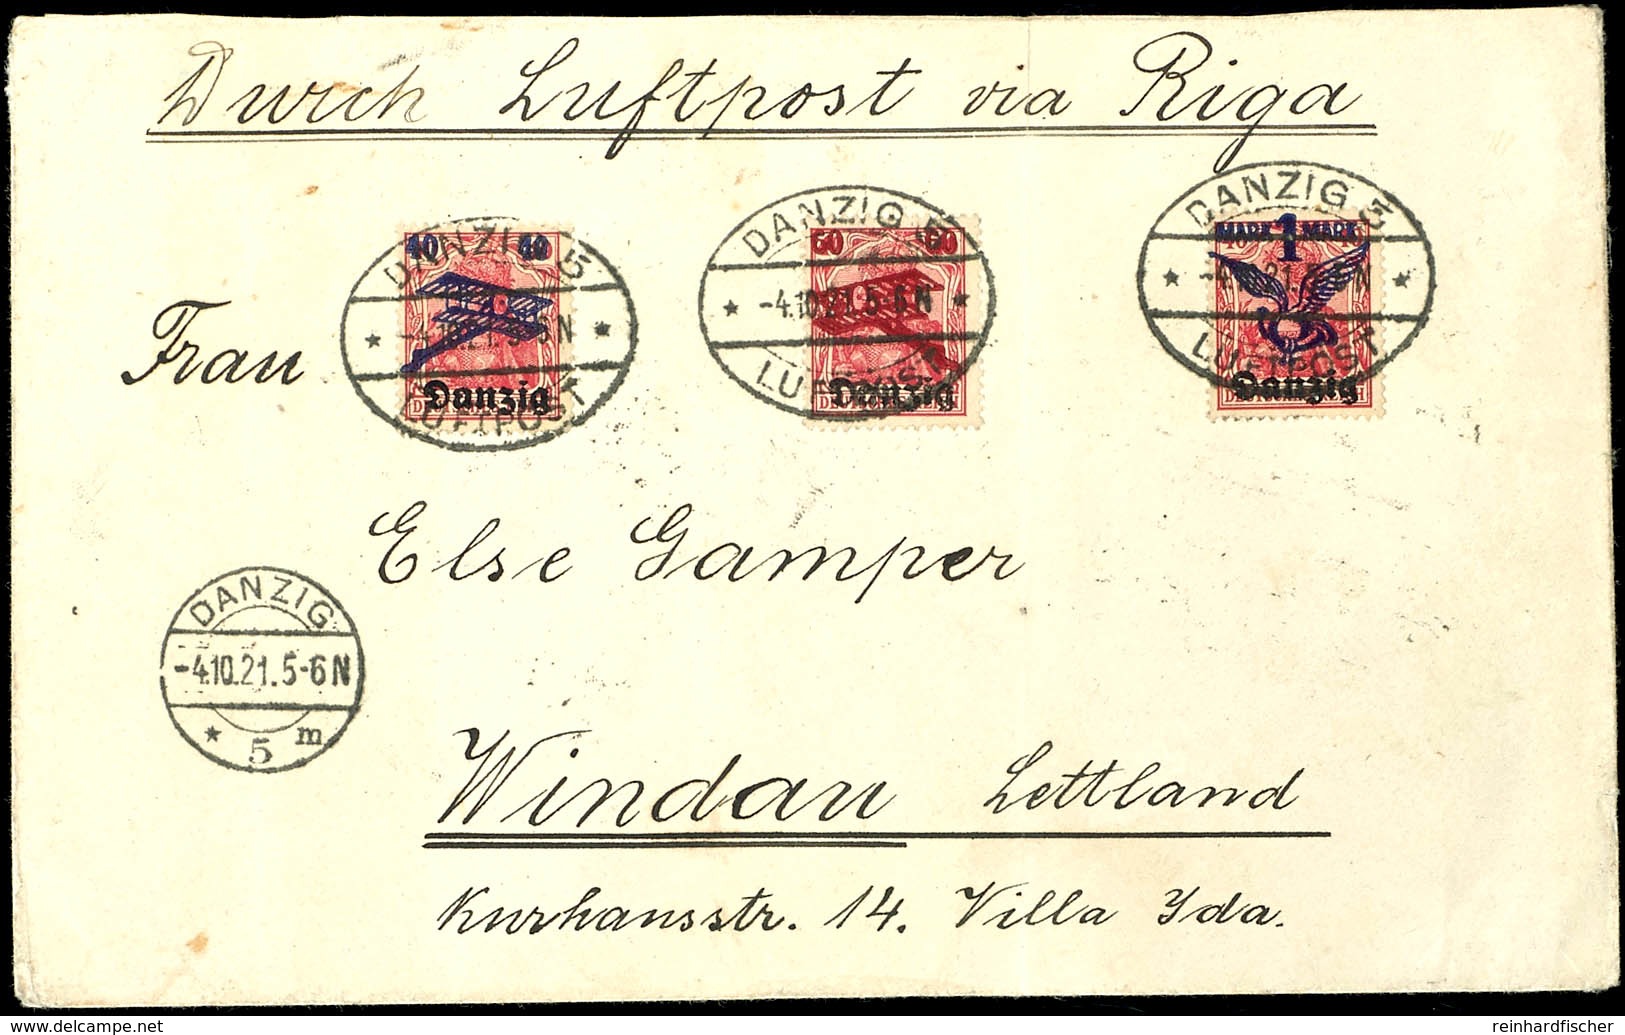 Durch Luftpost via Riga
DANZIG 5
-4.10.21.5-6N
LUFTPOST
40 40
Danzig
DANZIG 5
-4.10.21.5-6N
LUFTPOST
60 60
Danzig
DANZIG 5
-4.10.21.5-6N
LUFTPOST
MARK 1 MARK
Danzig
Frau
Else Gamper
DANZIG
-4.10.21.5-6N
* 5 m
Windau Lettland
Kurhausstr. 14. Villa Ida.
delcampe.net
reinhardfischer